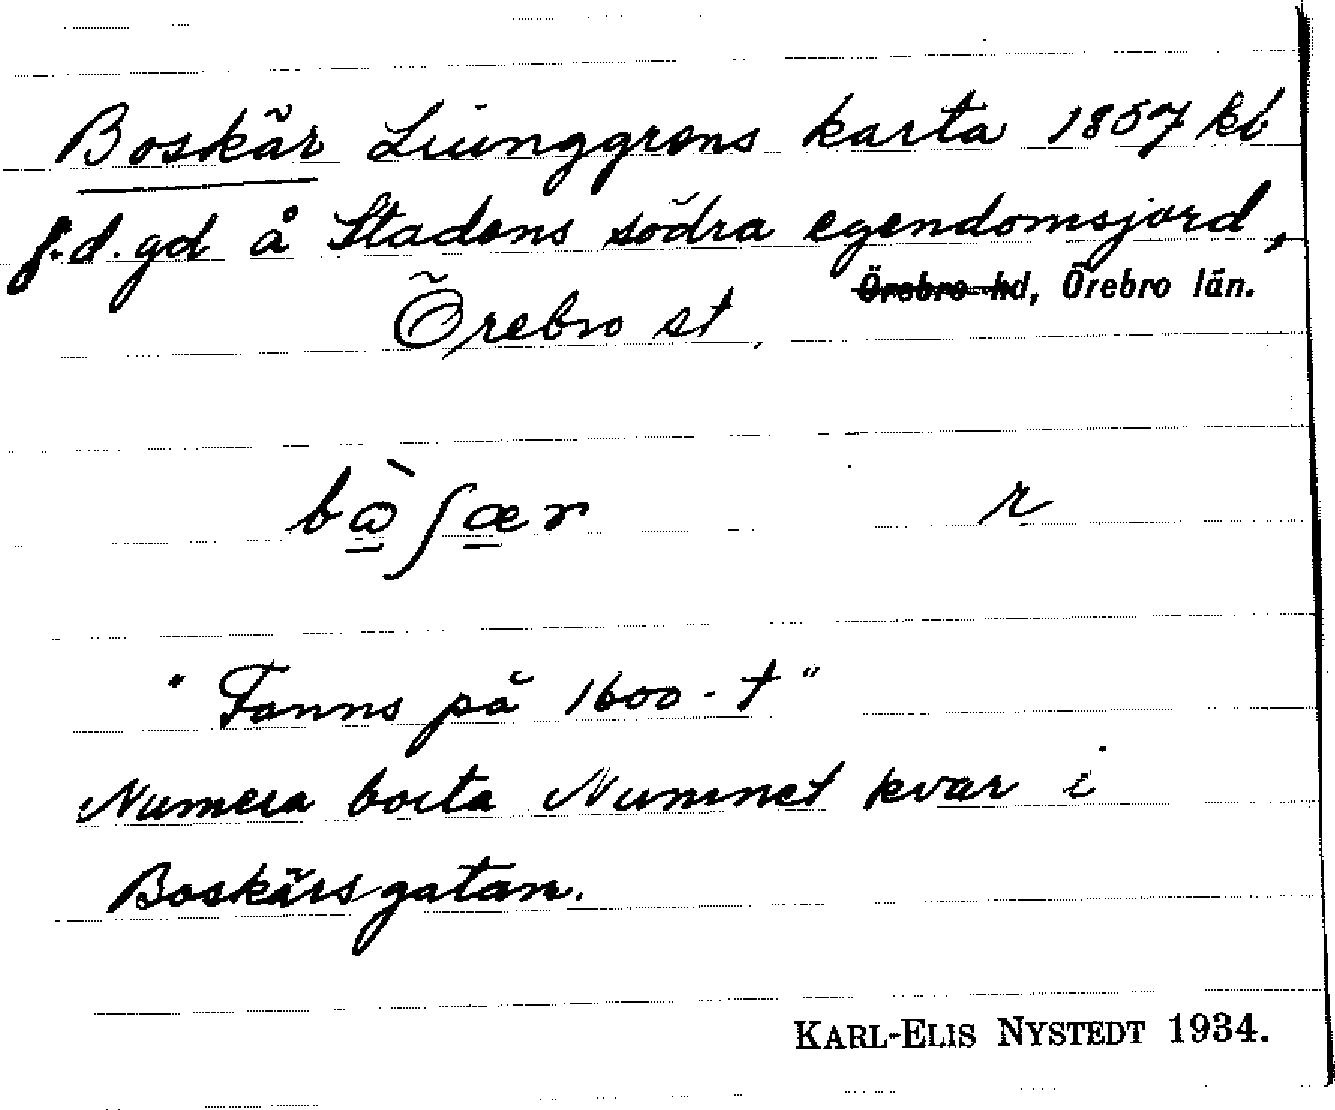 Boskär Liunggrens karta 1857 kl
f.d. gd å Stadens södra egendomsjord,
Örebro hd, Örebro län.
Örebro st.
bὼʃær r
"Fanns på 1600-t"
Numera borta Numnet kvar i
Boskärsgatan.
KARL-ELIS NYSTEDT 1934.